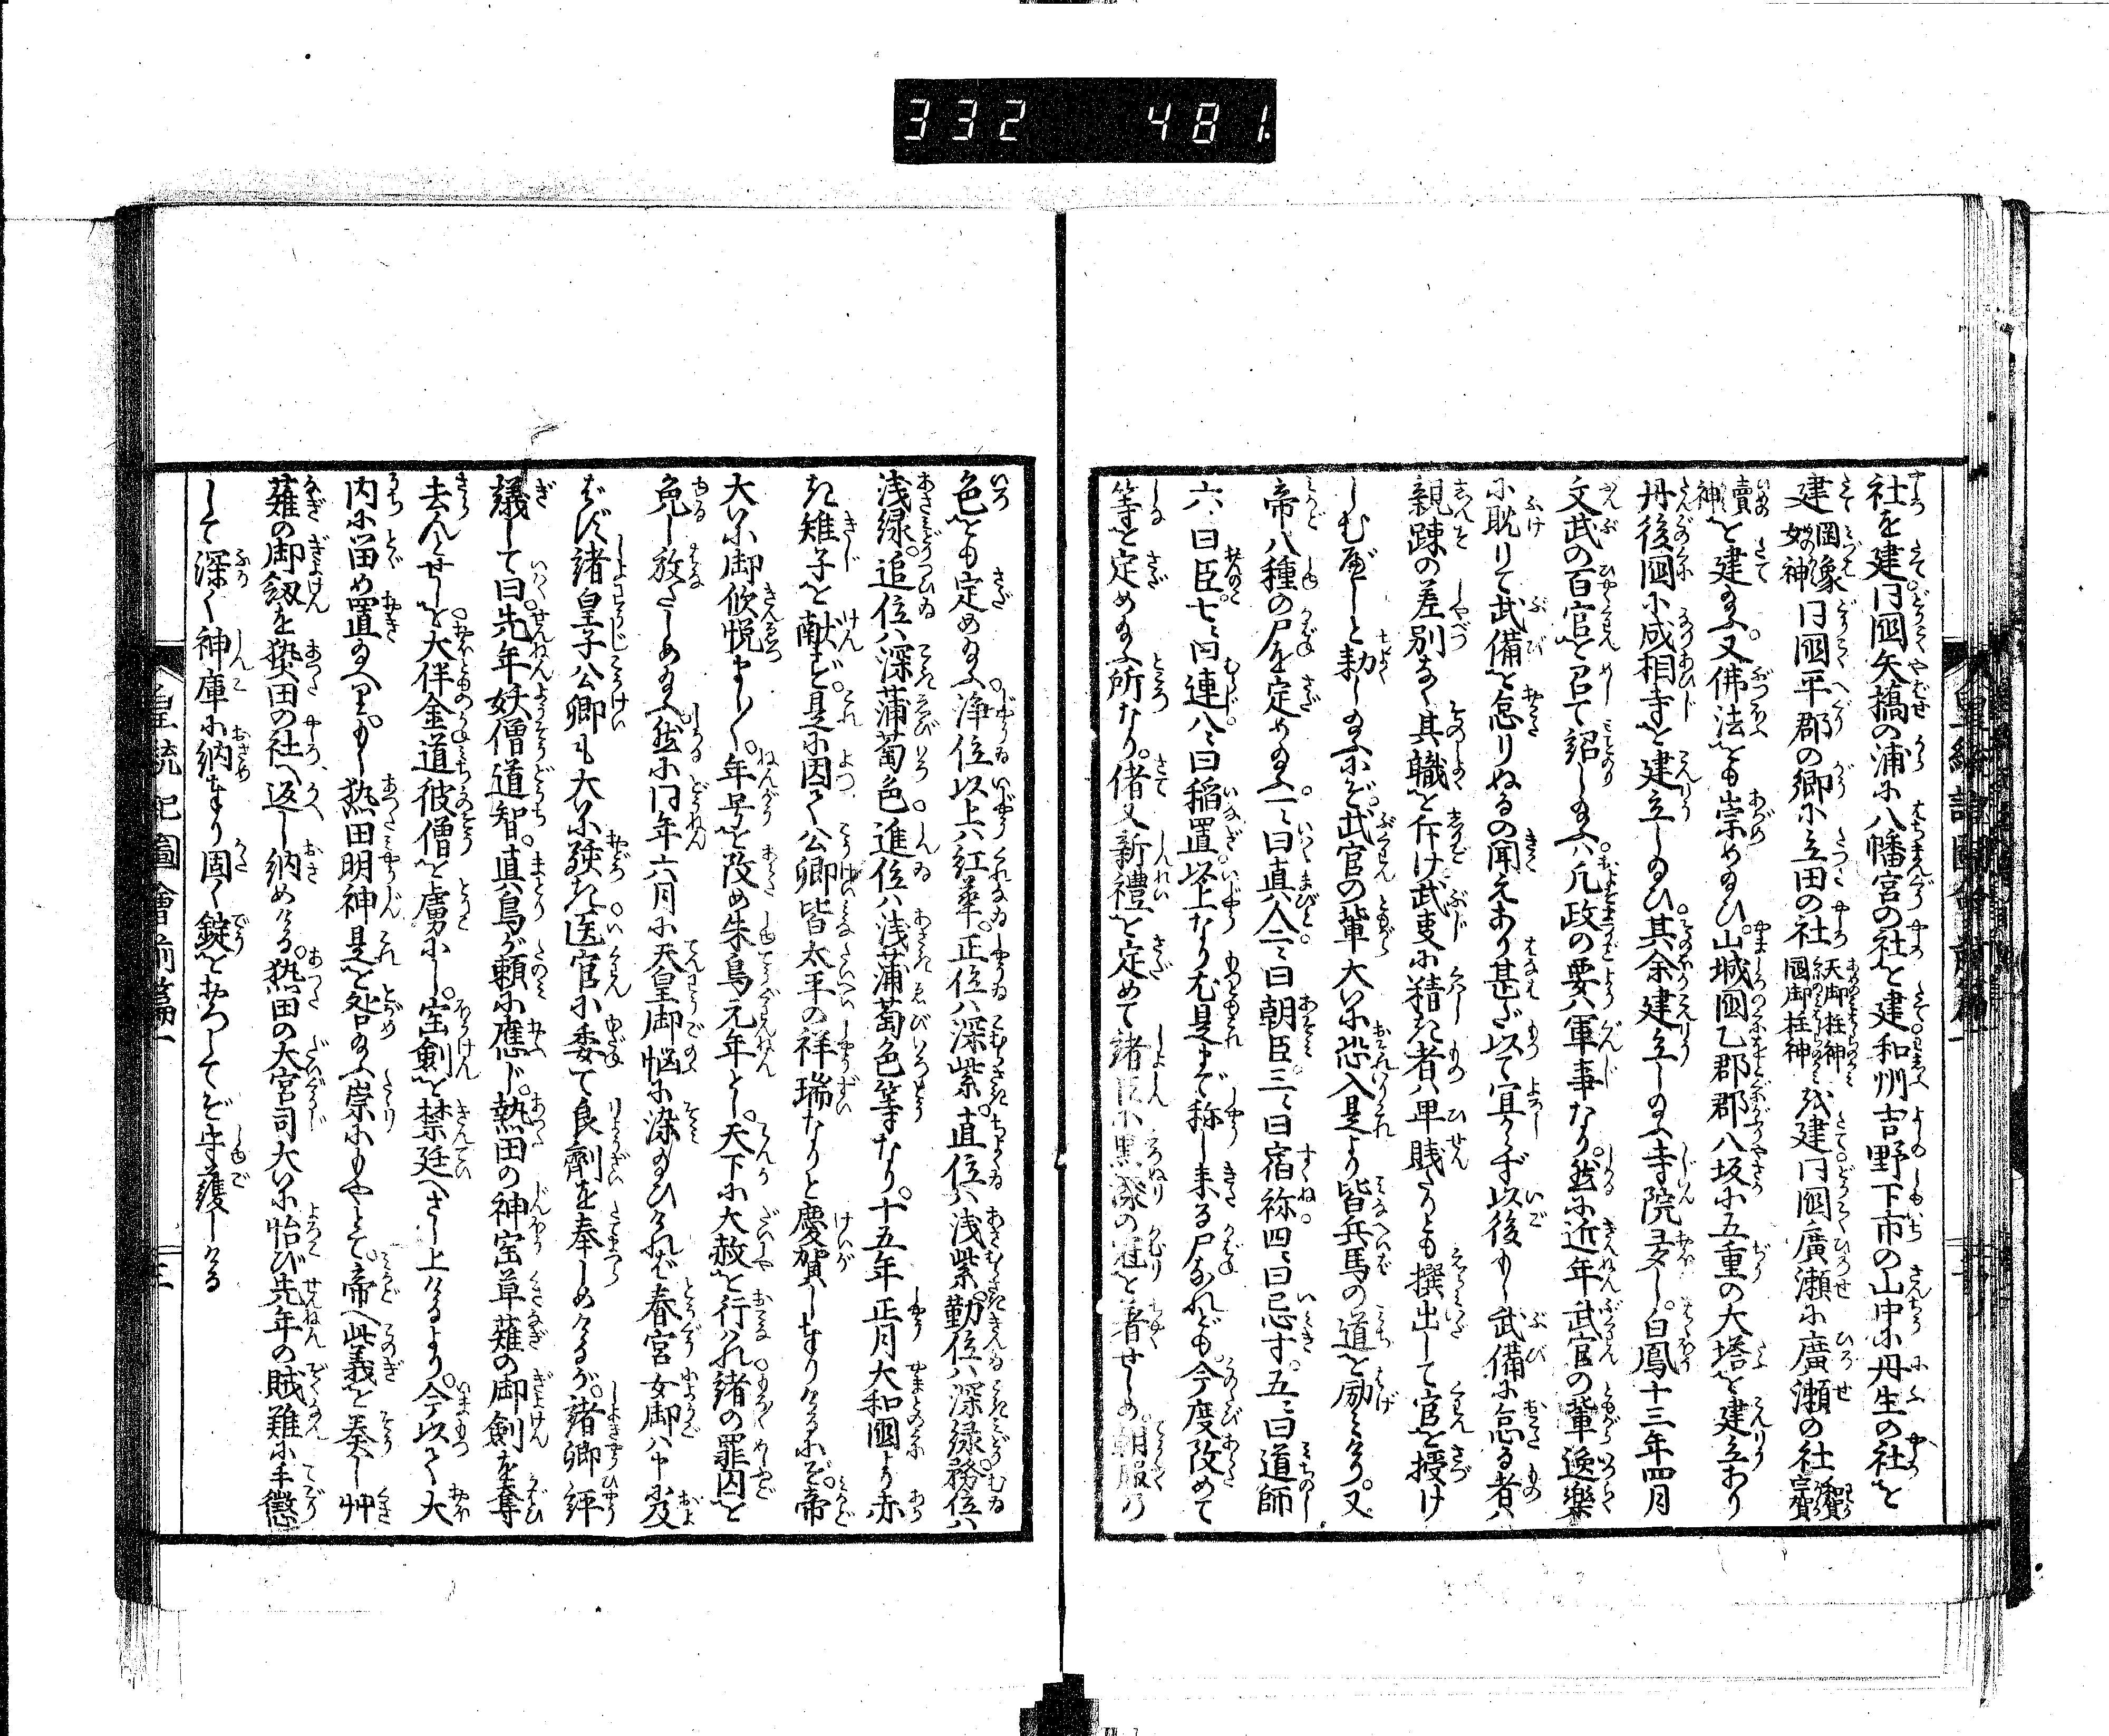 332 481.
社を建。同国矢橋の浦に八幡宮の社を建。和州吉野下市の山中に丹生の社を
建罔象女神同国平郡の郷に立田の社天御柱神国御柱神を建同国廣瀬に廣瀬の社
賣神を建給ふ。又佛法をも崇め給ひ。山城国乙郡郡八坂に五重の大塔を建立あり
丹後国に成相寺を建立し給ひ。其余建立し給ふ寺院多し。白鳳十三年四月
文武の百官を召て詔し給ふハ。凡政の要ハ軍事なり。然に近年武官の輩逸樂
に耽りて武備を怠りぬるの聞えあり甚だ以て宜からず以後もし武備に怠る者ハ
親疎の差別なく其職を斥け武事に精き者ハ卑賎たりとも撰出して官を授け
しむべしと勅し給ふにぞ。武官の輩大いに恐入是より皆兵馬の道を励みけり。又
帝八種の尸を定め給ふ。一ニ曰真人二ニ曰朝臣三ニ曰宿祢四ニ曰忌寸。五ニ曰道師
六ニ曰臣七ニ曰連八ニ曰稲置以上なり尤是まで称し来る尸なれども。今度改めて
等を定め給ふ所なり。偖又新禮を定めて諸臣に黒漆の冠を着せしめ。朝服の
色をも定め給ふ。浄位以上ハ紅華。正位ハ深紫。直位ハ浅紫。勤位ハ深緑。務位ハ
浅緑。追位ハ深蒲萄色。進位ハ浅蒲萄色等なり。十五年正月大和國より赤
き雉子を献ず。是に因て公卿皆太平の祥瑞なりと慶賀し奉りけるにぞ。帝
大いに御欣悦まし〳〵。年号を改め朱鳥元年とし。天下に大赦を行はれ諸の罪囚を
免し放たしめ給ふ然に同年六月に天皇御悩に染給ひけれバ春宮女御ハ申に及
ばず諸皇子公卿も大いに駭き医官に委て良劑を奉しめけるが。諸卿評
議して曰先年妖僧道智。真鳥が頼に應じ。熱田の神宝草薙の御剣を奪
去んとせしを。大伴金道彼僧を虜にし。宝剣を禁廷へさし上けるより。今以て大
内に留め置給へり。もし熱田明神是を咎給ふ祟にもやとて。帝へ此義を奏し艸
薙の御釼を熱田の社へ返し納めける。熱田の大宮司大いに怡び先年の賊難に手懲
して深く神庫に納奉り固く錠をおろしてぞ守護しける
皇統記圖會前篇一
三